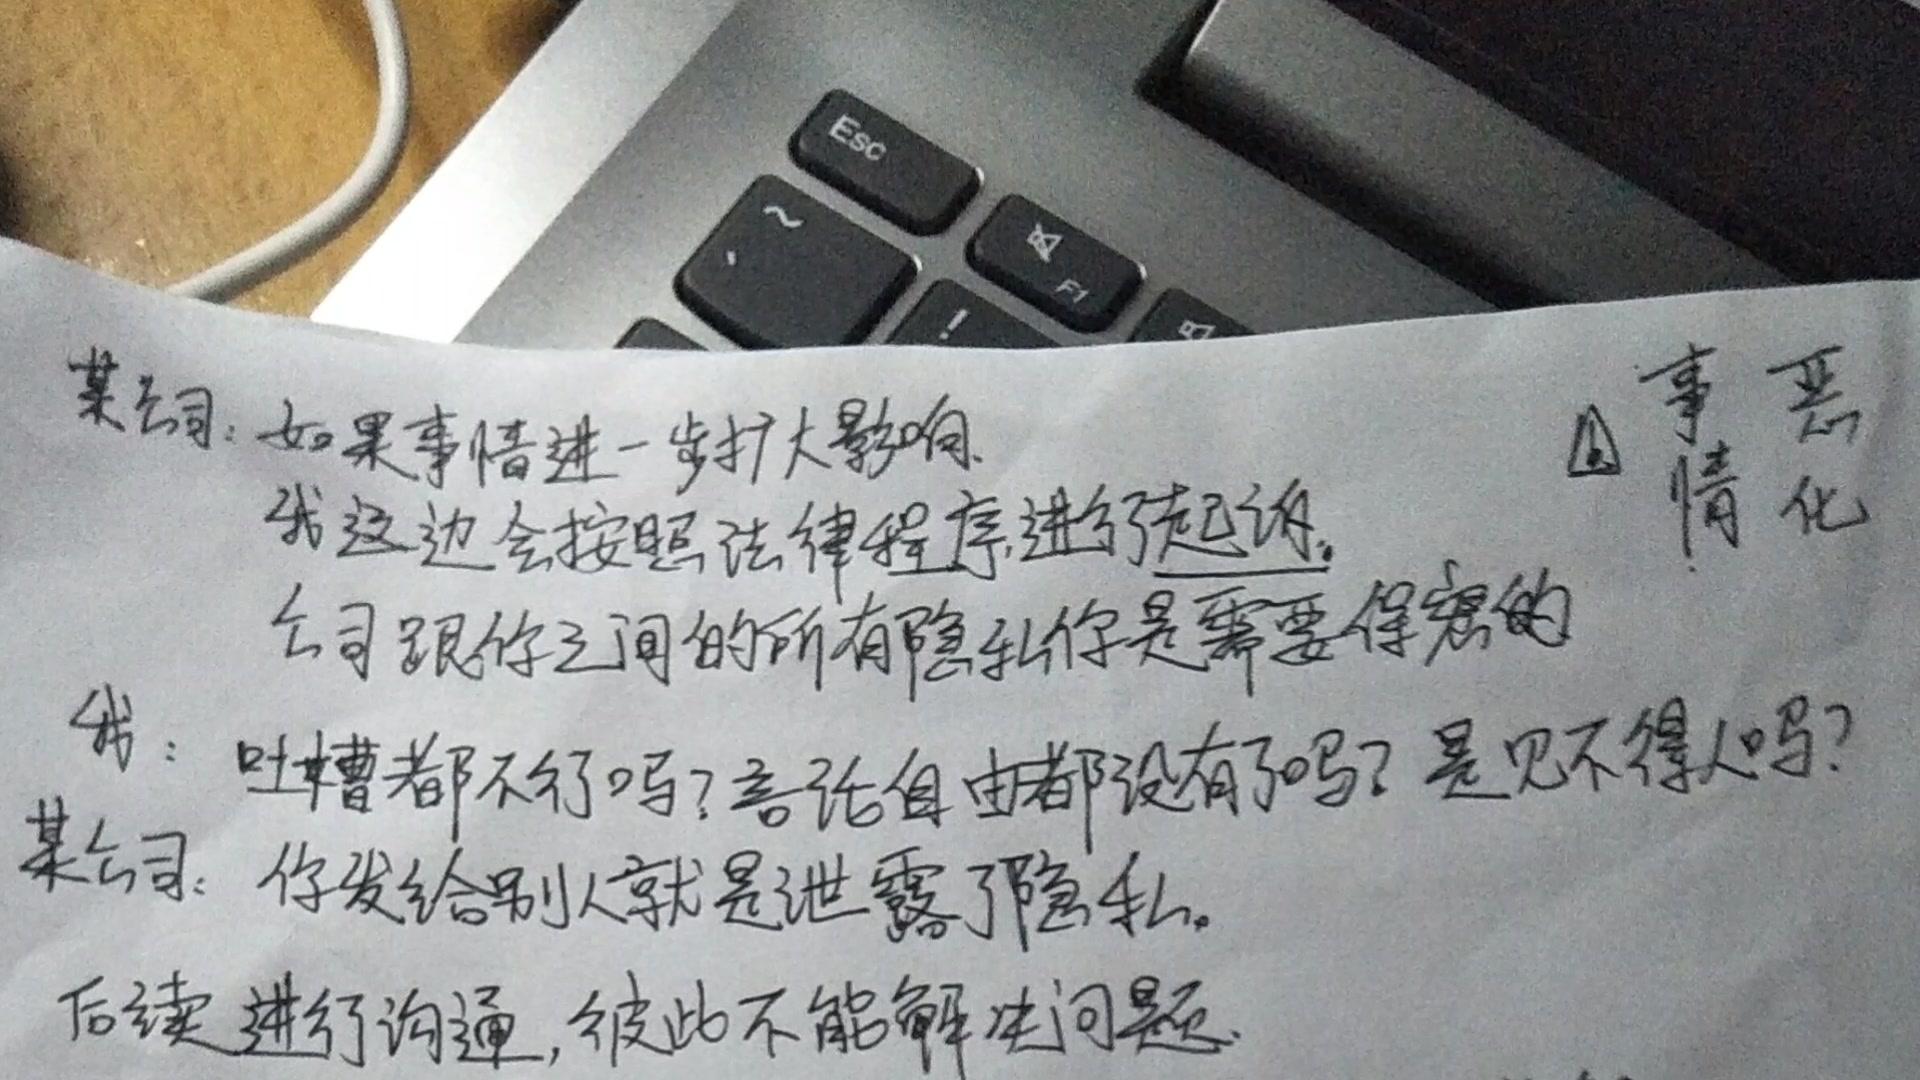 Esc
~
F1
!
某公司：如果事情进一步扩大影响.
我这边会按照法律程序,进行起诉。
公司跟你之间的所有隐私你是需要保密的
我：吐槽都不行吗？言论自由都没有了吗？是见不得人吗？
某公司：你发给别人就是泄露了隐私。
后续进行沟通,彼此不能解决问题.
事情
恶化